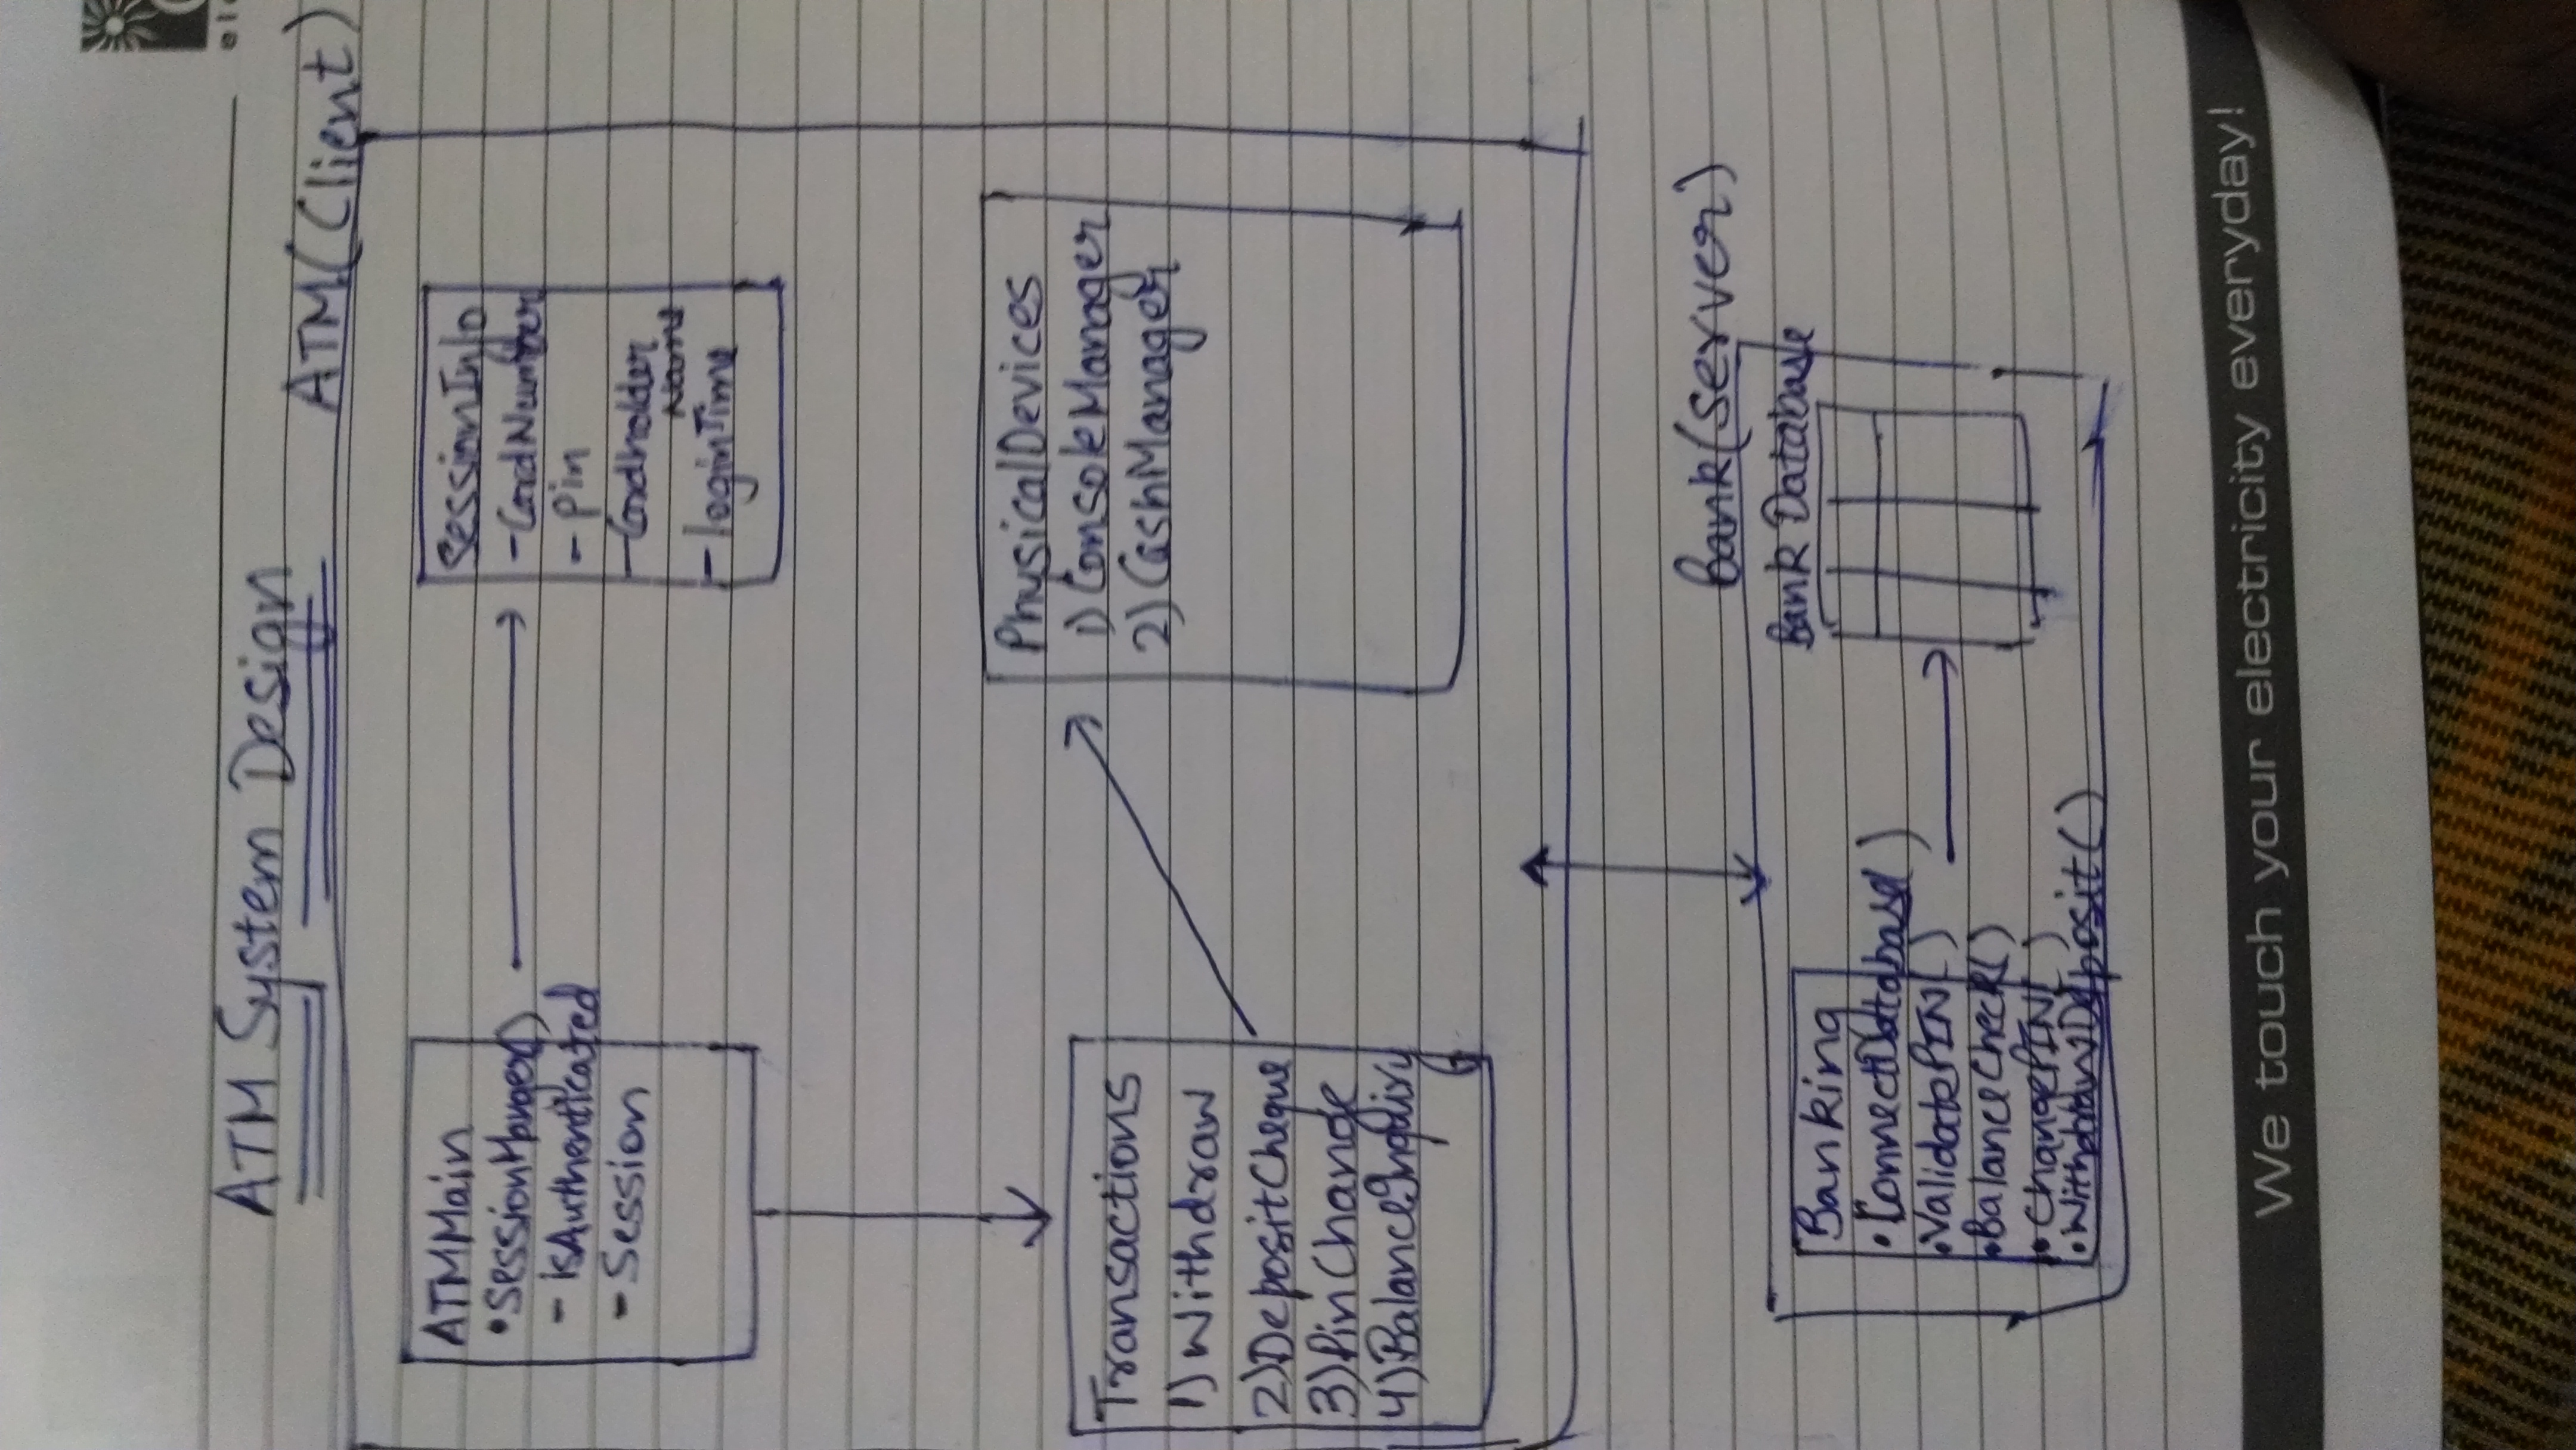 ATM System Design
ATM(Client)
ATMMain
• SessionManager()
- isAuthenticated
- Session
SessionInfo
- CardNumber
- Pin
- Cardholder
Name
- loginTime
Transactions
1) Withdraw
2) DepositCheque
3) Pin Change
4) BalanceInquiry
PhysicalDevices
1) ConsoleManager
2) CashManager
Bank(Server)
Banking
• ConnectDatabase()
• ValidatePIN()
• BalanceCheck()
• ChangePIN()
Bank Database
We touch your electricity everyday!